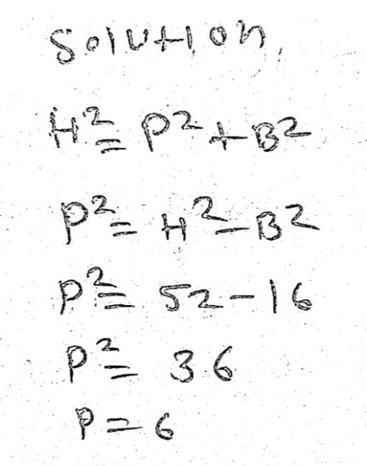 Solution,
H² = P² + B²
P² = H² - B²
P² = 52 - 16
P² = 36
P = 6